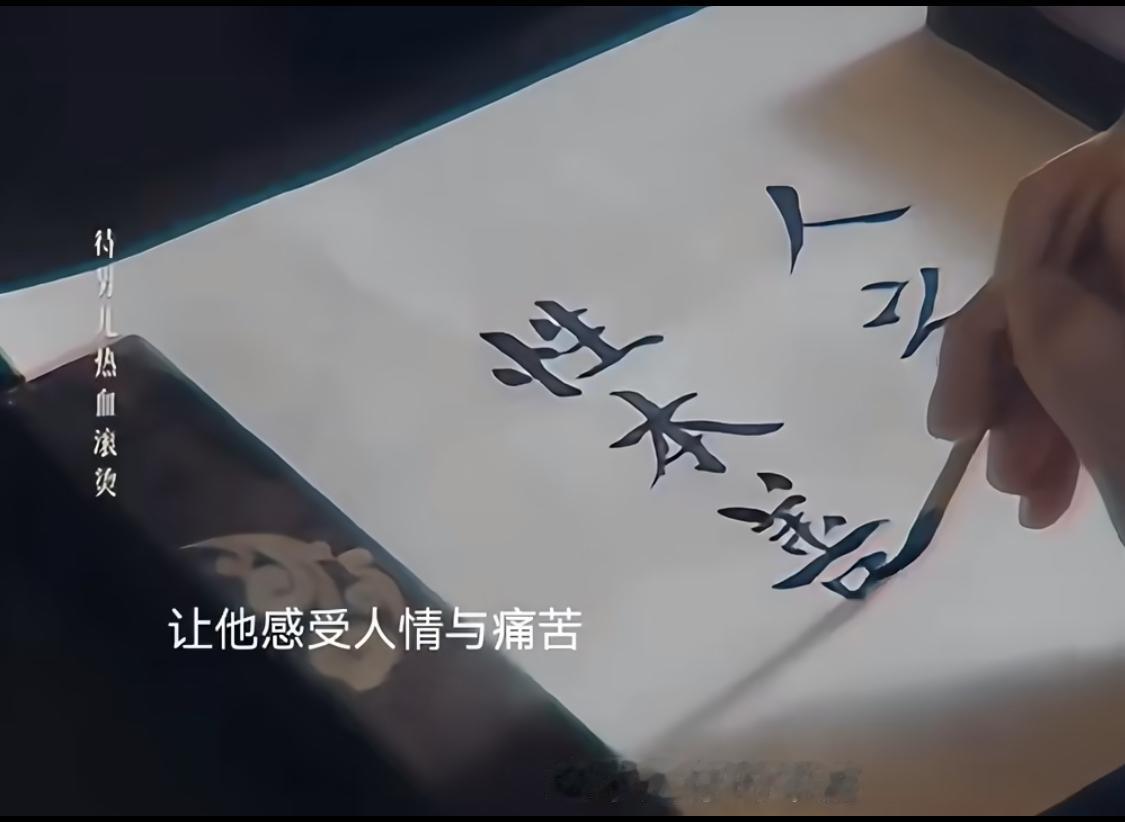 待男儿热血滚烫
性本善
让他感受人情与痛苦